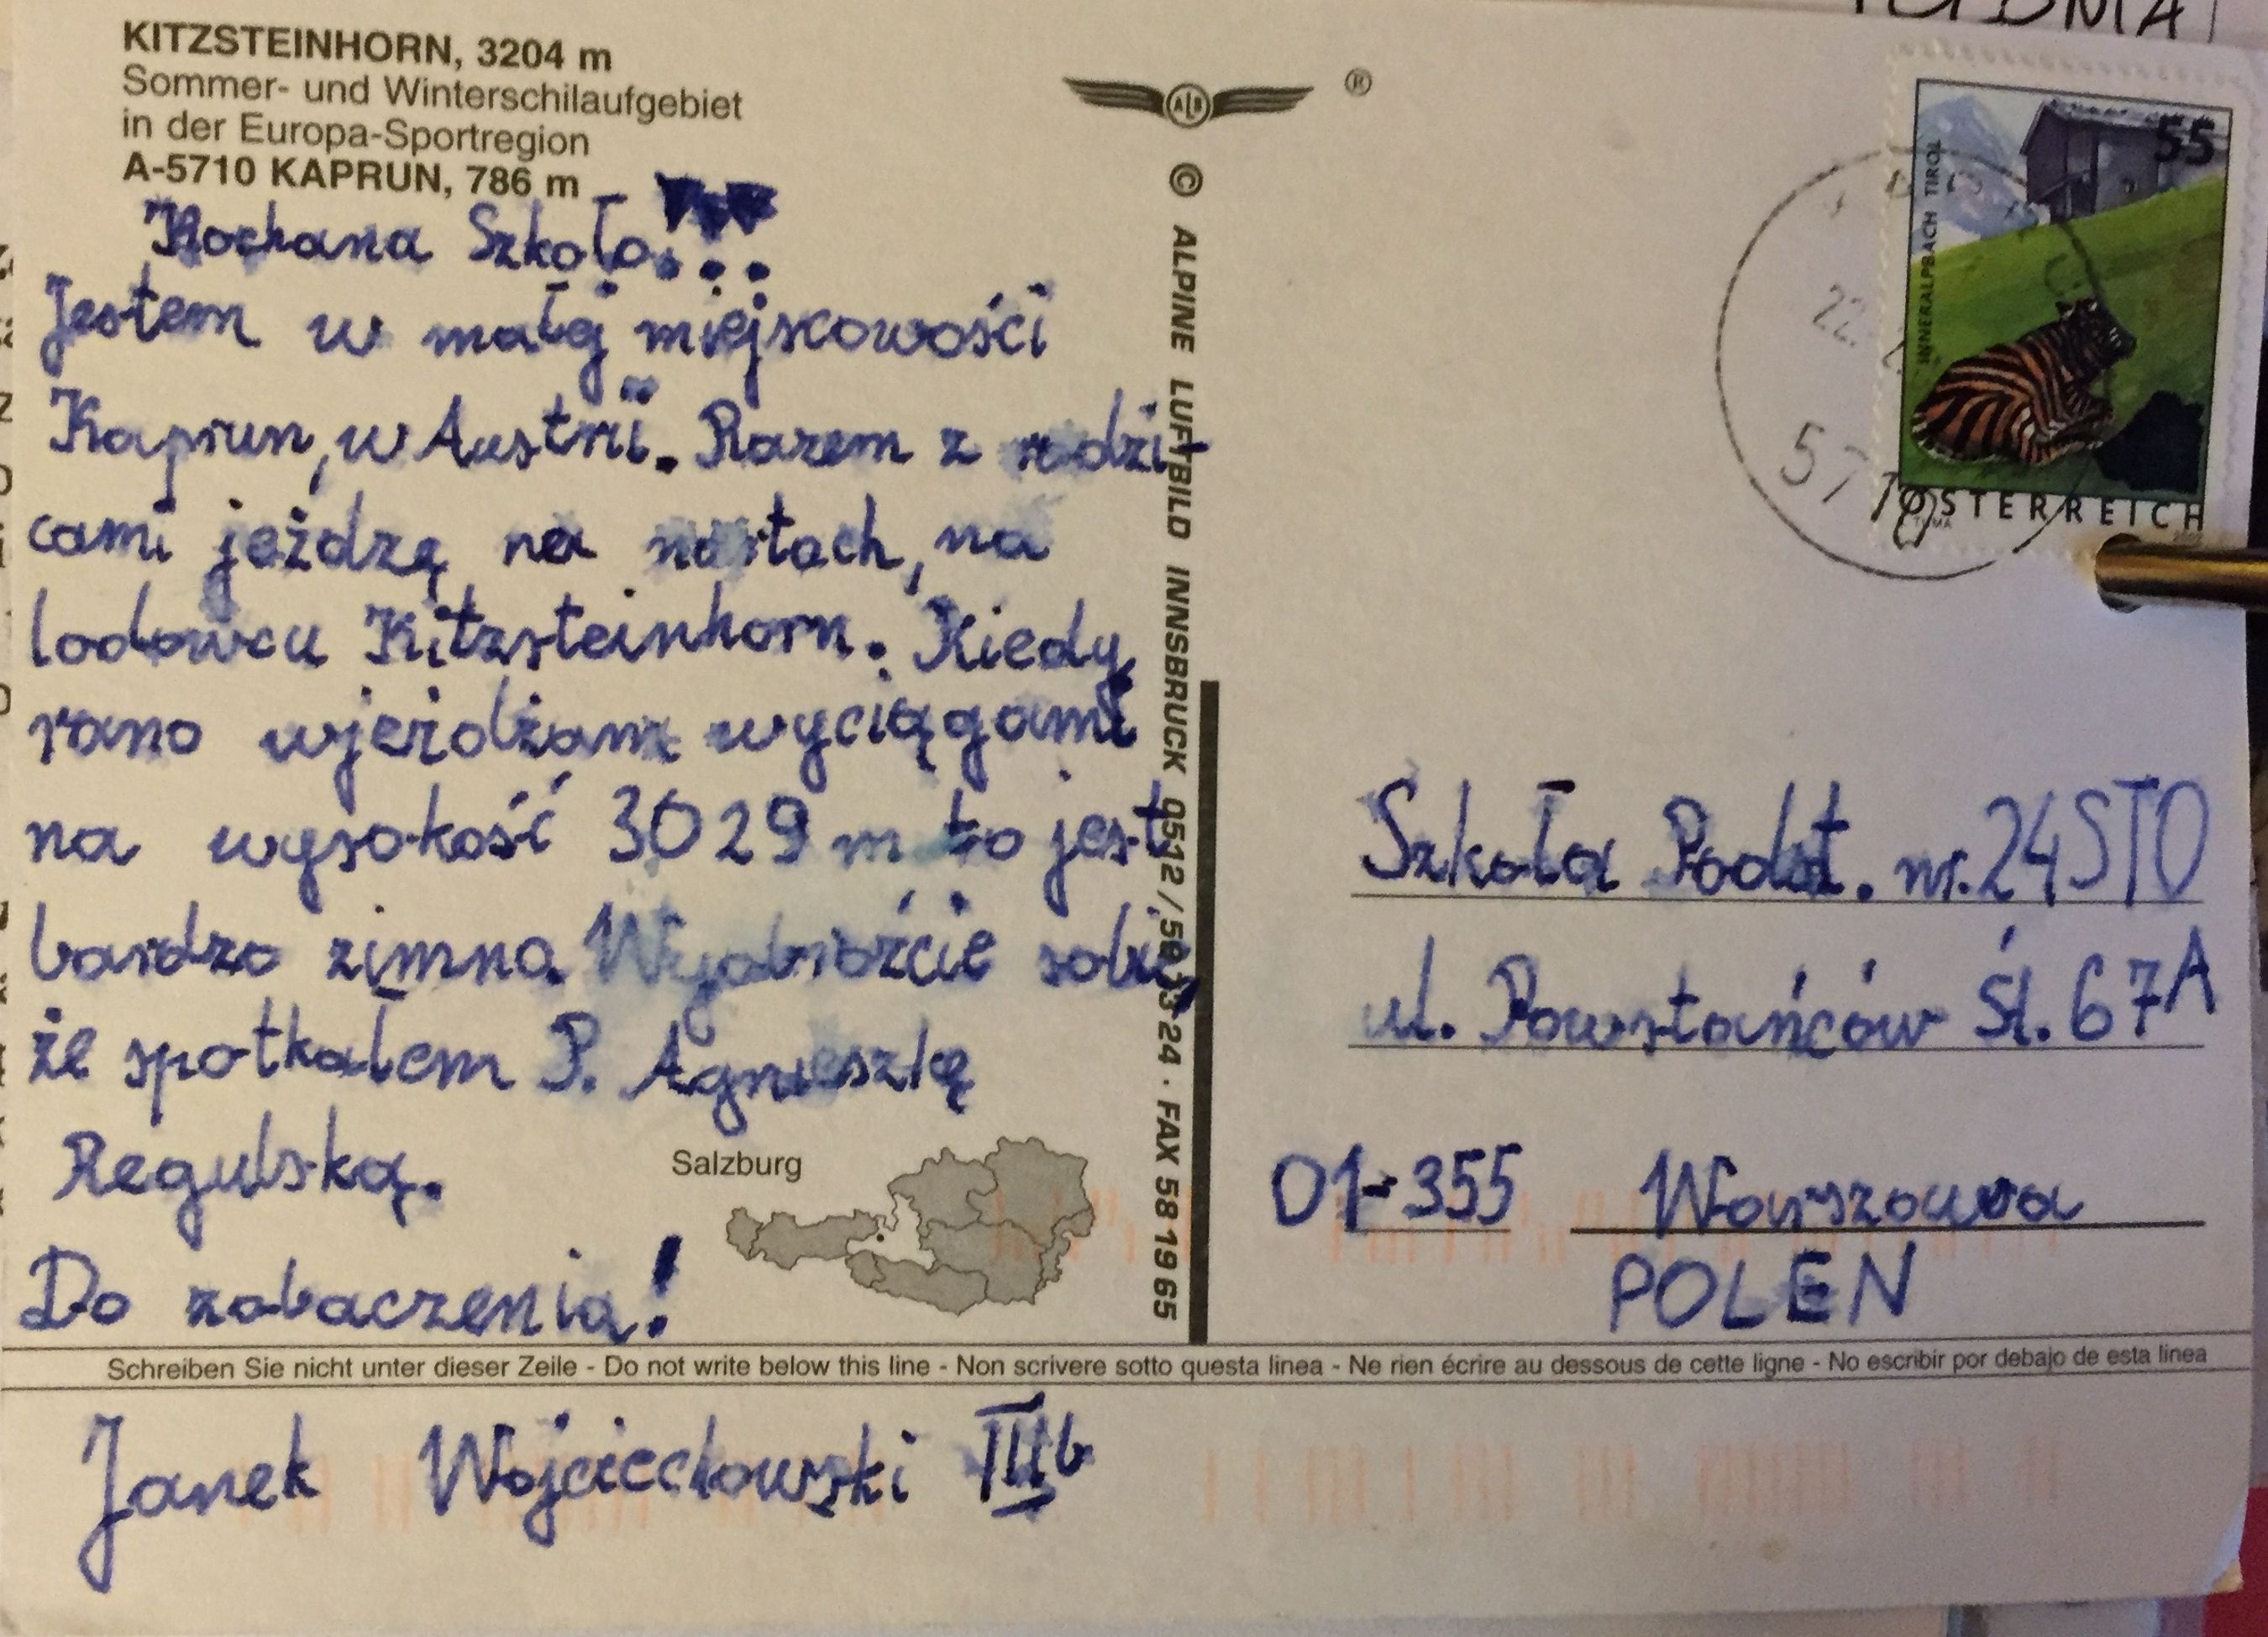 KITZSTEINHORN, 3204 m
Sommer- und Winterschilaufgebiet
in der Europa-Sportregion
A-5710 KAPRUN, 786 m
Kochana Szkoło!!!
Jestem w małej miejscowości
Kaprun, w Austrii. Razem z rodzi-
cami jeżdżę na nartach, na
lodowcu Kitzsteinhorn. Kiedy
rano wjeżdżam wyciągami
na wysokość 3029 m to jest
bardzo zimno. Wyobraźcie sobie,
że spotkałem P. Agnieszkę
Regulską.
Do zobaczenia!
Salzburg
ALB ®
© ALPINE LUFTBILD INNSBRUCK 0512 / 58 13 24 · FAX 58 19 65
INNERALPBACH TIROL
55
ÖSTERREICH
22.
5710
Szkoła Podst. nr. 24 STO
ul. Powstańców Śl. 67A
01-355 Warszawa
POLEN
Schreiben Sie nicht unter dieser Zeile - Do not write below this line - Non scrivere sotto questa linea - Ne rien écrire au dessous de cette ligne - No escribir por debajo de esta linea
Janek Wojciechowski IIIb